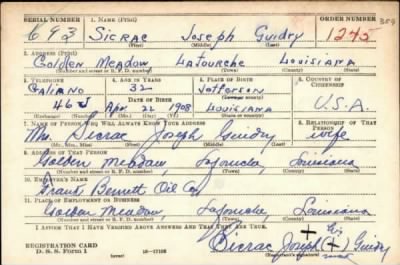 SERIAL NUMBER 1. NAME (Print) ORDER NUMBER
693 Sicrac Joseph Guidry 1245
(First) (Middle) (Last)
2. ADDRESS (Print)
Golden Meadow Lafourche Louisiana
(Number and street or R. F. D. number) (Town) (County) (State)
3. TELEPHONE 4. AGE IN YEARS 5. PLACE OF BIRTH 6. COUNTRY OF CITIZENSHIP
Galiano 32 Jefferson
DATE OF BIRTH (Town or county)
46J Apr 22 1908 Louisiana U.S.A.
(Exchange) (Number) (Mo.) (Day) (Yr.) (State or country)
7. NAME OF PERSON WHO WILL ALWAYS KNOW YOUR ADDRESS 8. RELATIONSHIP OF THAT PERSON
Mrs. Sicrac Joseph Guidry wife
(Mr., Mrs., Miss) (First) (Middle) (Last)
9. ADDRESS OF THAT PERSON
Golden Meadow, Lafourche, Louisiana
(Number and street or R. F. D. number) (Town) (County) (State)
10. EMPLOYER'S NAME
Grant Bennett Oil Co
11. PLACE OF EMPLOYMENT OR BUSINESS
Golden Meadow, Lafourche, Louisiana
(Number and street or R. F. D. number) (Town) (County) (State)
I AFFIRM THAT I HAVE VERIFIED ABOVE ANSWERS AND THAT THEY ARE TRUE.
his
REGISTRATION CARD
D. S. S. Form 1 (over) Sicrac Joseph (+) Guidry
(Registrant's signature) mark